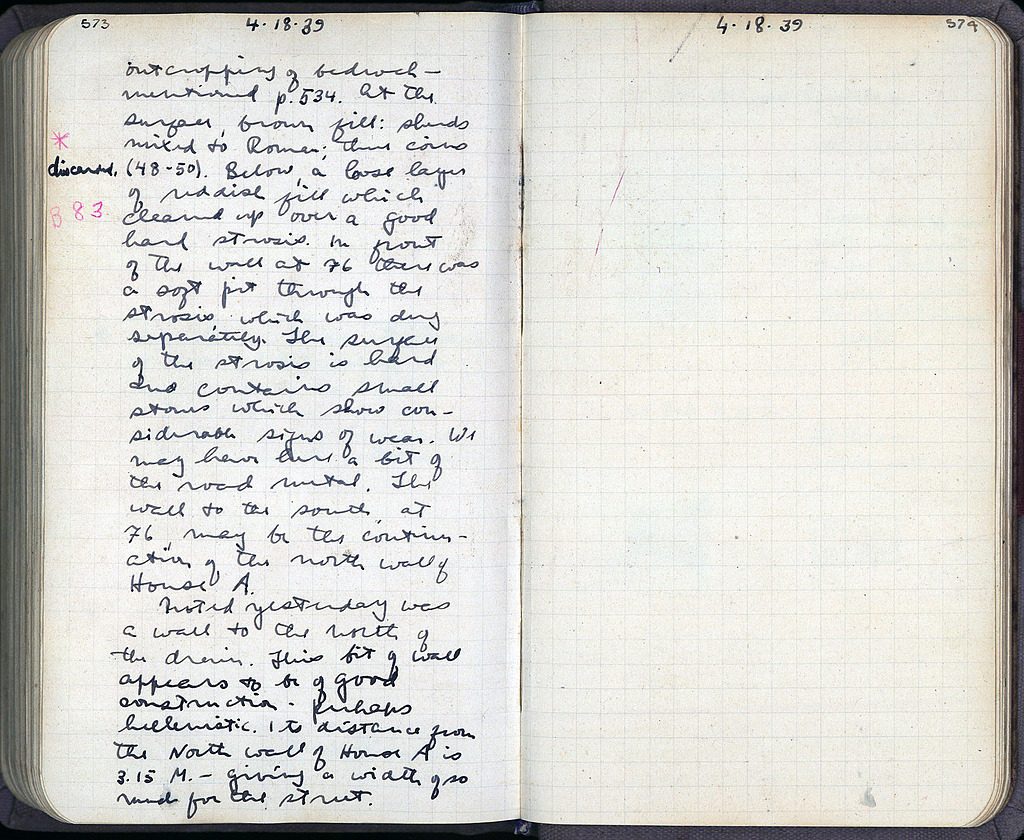 573
4·18·39
outcropping of bedrock —
mentioned p. 534. At the
surface, brown fill: sherds
mixed to Roman; three coins
(48-50). Below, a loose layer
of reddish fill which
cleaned up over a good
hard strosis. In front
of the wall at 76 there was
a soft pit through the
strosis, which was dug
separately. The surface
of the strosis is hard
and contains small
stones which show con-
siderable signs of wear. We
may have here a bit of
the road metal. The
wall to the south, at
76, may be the continu-
ation of the north wall of
House A.
Noted yesterday was
a wall to the north of
the drain. This bit of wall
appears to be of good
construction - perhaps
hellenistic. Its distance from
the North wall of House A is
3.15 M. — giving a width of so
much for the street.
*
discarded.
B 83
4·18·39
574